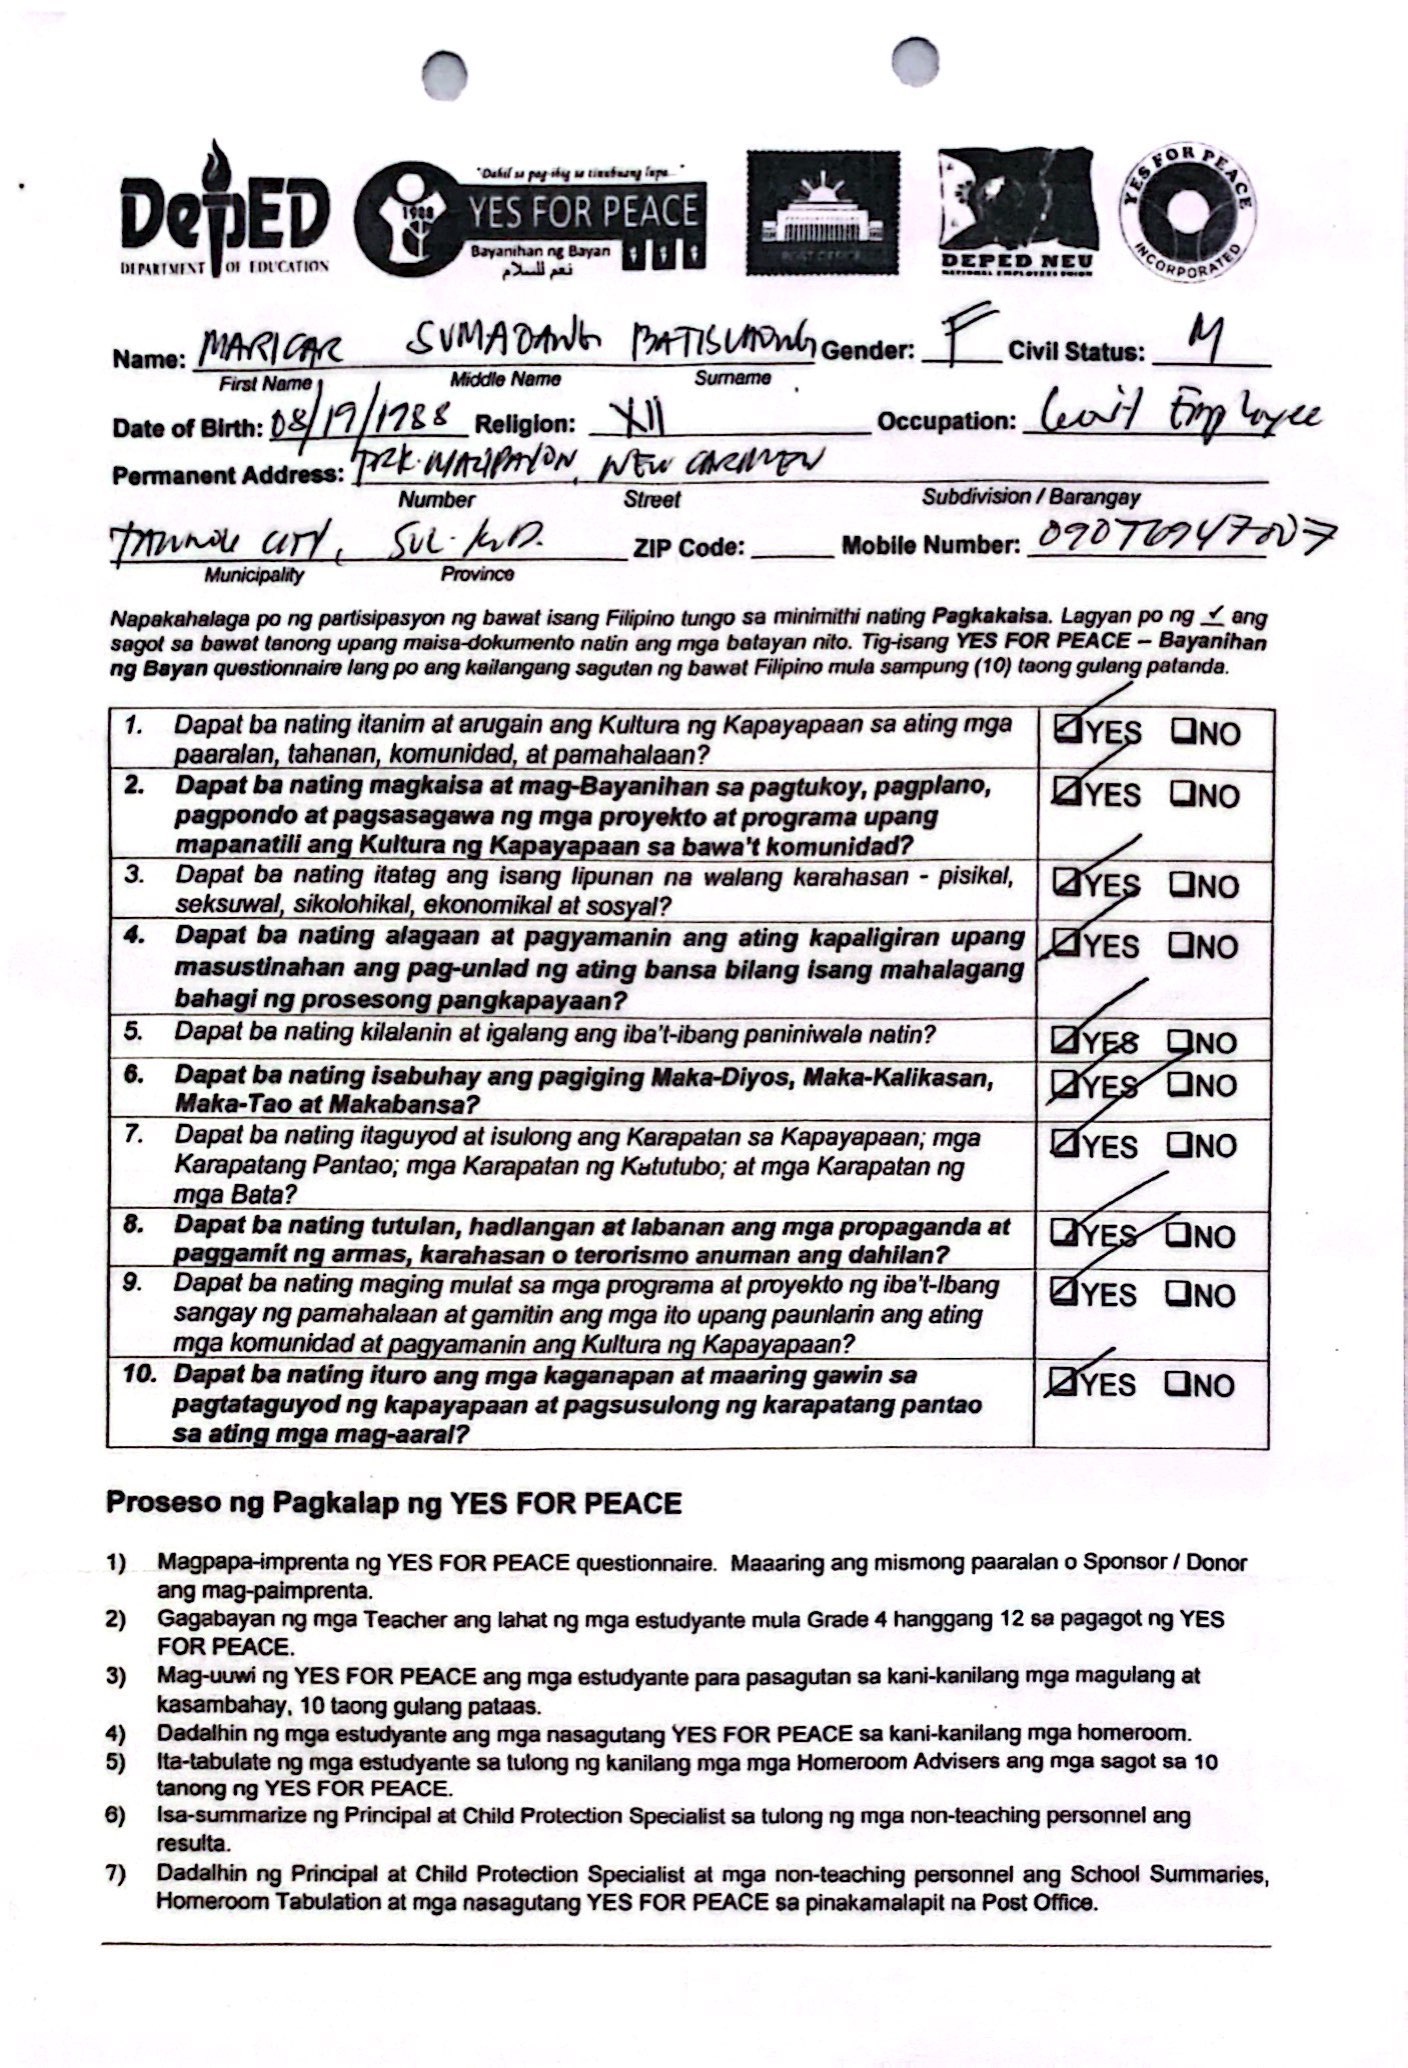 DepED
DEPARTMENT OF EDUCATION
"Dahil sa pag-ibig sa tinubuang lupa..."
1988 YES FOR PEACE
Bayanihan ng Bayan
نعم للسلام
POST OFFICE
DEPED NEU
NATIONAL EMPLOYEES UNION
YES FOR PEACE
INCORPORATED
Name: MARICAR SUMADANG Gender: F Civil Status: M
First Name Middle Name Surname
Date of Birth: 08/19/1988 Religion: Occupation: Employee
Permanent Address: PRK. MALIPAYON, NEW CARMEN
Number Street Subdivision / Barangay
CITY, ZIP Code: Mobile Number:
Municipality Province
Napakahalaga po ng partisipasyon ng bawat isang Filipino tungo sa minimithi nating Pagkakaisa. Lagyan po ng ✓ ang
sagot sa bawat tanong upang maisa-dokumento natin ang mga batayan nito. Tig-isang YES FOR PEACE – Bayanihan
ng Bayan questionnaire lang po ang kailangang sagutan ng bawat Filipino mula sampung (10) taong gulang patanda.
1. Dapat ba nating itanim at arugain ang Kultura ng Kapayapaan sa ating mga ☑YES ☐NO
paaralan, tahanan, komunidad, at pamahalaan?
2. Dapat ba nating magkaisa at mag-Bayanihan sa pagtukoy, pagplano, ☑YES ☐NO
pagpondo at pagsasagawa ng mga proyekto at programa upang
mapanatili ang Kultura ng Kapayapaan sa bawa't komunidad?
3. Dapat ba nating itatag ang isang lipunan na walang karahasan - pisikal, ☑YES ☐NO
seksuwal, sikolohikal, ekonomikal at sosyal?
4. Dapat ba nating alagaan at pagyamanin ang ating kapaligiran upang ☑YES ☐NO
masustinahan ang pag-unlad ng ating bansa bilang isang mahalagang
bahagi ng prosesong pangkapayaan?
5. Dapat ba nating kilalanin at igalang ang iba't-ibang paniniwala natin? ☑YES ☐NO
6. Dapat ba nating isabuhay ang pagiging Maka-Diyos, Maka-Kalikasan, ☑YES ☐NO
Maka-Tao at Makabansa?
7. Dapat ba nating itaguyod at isulong ang Karapatan sa Kapayapaan; mga ☑YES ☐NO
Karapatang Pantao; mga Karapatan ng Katutubo; at mga Karapatan ng
mga Bata?
8. Dapat ba nating tutulan, hadlangan at labanan ang mga propaganda at ☑YES ☐NO
paggamit ng armas, karahasan o terorismo anuman ang dahilan?
9. Dapat ba nating maging mulat sa mga programa at proyekto ng iba't-Ibang ☑YES ☐NO
sangay ng pamahalaan at gamitin ang mga ito upang paunlarin ang ating
mga komunidad at pagyamanin ang Kultura ng Kapayapaan?
10. Dapat ba nating ituro ang mga kaganapan at maaring gawin sa ☑YES ☐NO
pagtataguyod ng kapayapaan at pagsusulong ng karapatang pantao
sa ating mga mag-aaral?
Proseso ng Pagkalap ng YES FOR PEACE
1) Magpapa-imprenta ng YES FOR PEACE questionnaire. Maaaring ang mismong paaralan o Sponsor / Donor
ang mag-paimprenta.
2) Gagabayan ng mga Teacher ang lahat ng mga estudyante mula Grade 4 hanggang 12 sa pagagot ng YES
FOR PEACE.
3) Mag-uuwi ng YES FOR PEACE ang mga estudyante para pasagutan sa kani-kanilang mga magulang at
kasambahay, 10 taong gulang pataas.
4) Dadalhin ng mga estudyante ang mga nasagutang YES FOR PEACE sa kani-kanilang mga homeroom.
5) Ita-tabulate ng mga estudyante sa tulong ng kanilang mga mga Homeroom Advisers ang mga sagot sa 10
tanong ng YES FOR PEACE.
6) Isa-summarize ng Principal at Child Protection Specialist sa tulong ng mga non-teaching personnel ang
resulta.
7) Dadalhin ng Principal at Child Protection Specialist at mga non-teaching personnel ang School Summaries,
Homeroom Tabulation at mga nasagutang YES FOR PEACE sa pinakamalapit na Post Office.